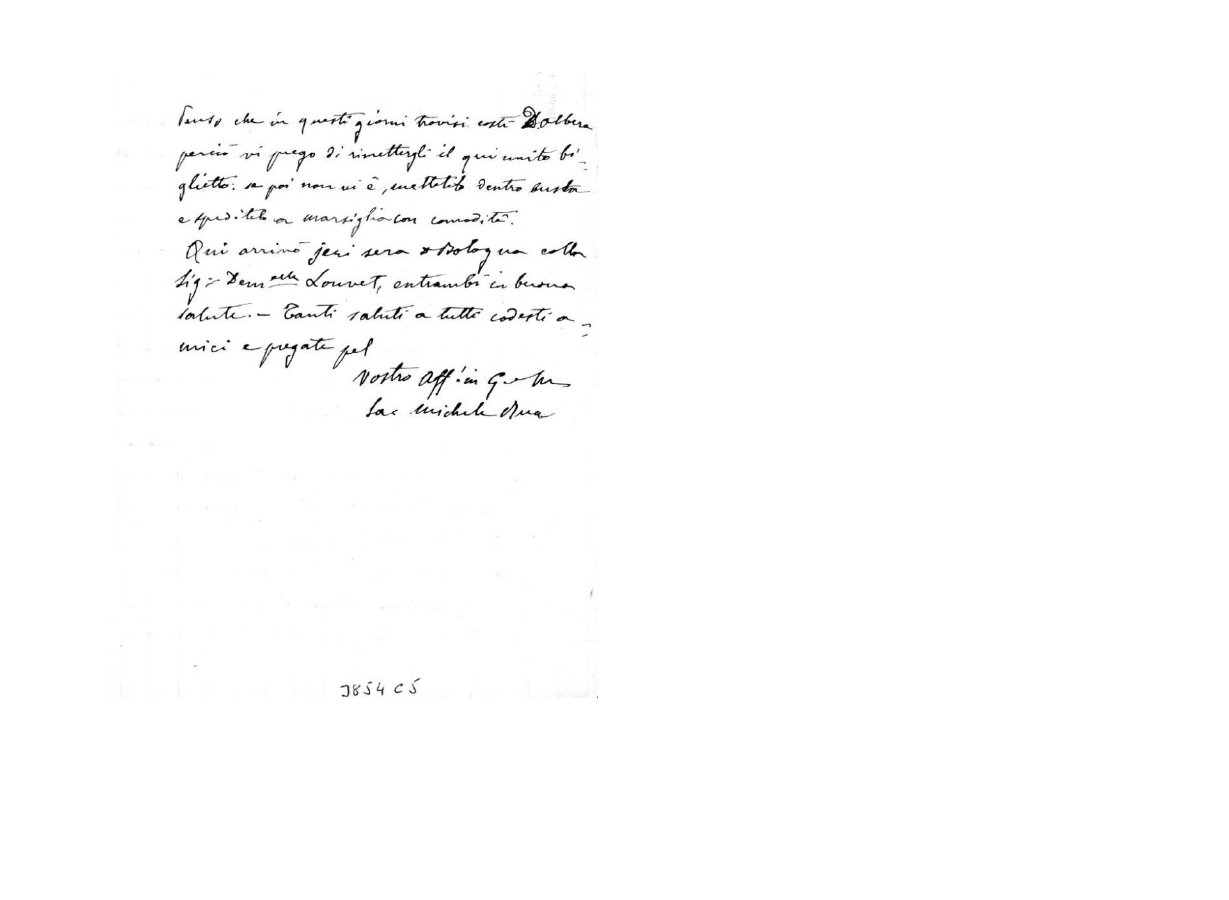 Penso che in questi giorni trovisi costì D. Albera
perciò vi prego di rimettergli il qui unito bi=
glietto: se poi non vi è, mettetelo dentro busta
e speditelo a Marsiglia con comodità.
Qui arrivò jeri sera D. Bologna colla
Sig.ª Dem.elle Louvet, entrambi in buona
salute. – Tanti saluti a tutti codesti a=
mici e pregate pel
Vostro Aff. in G. e M.
Sac Michele Rua
J854 C5